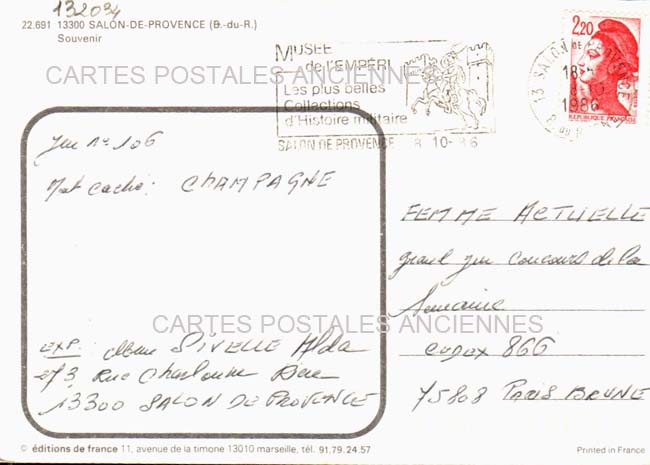 132034
22.691 13300 SALON-DE-PROVENCE (B.-du-R.)
Souvenir
MUSEE
de L'EMPÉRI
Les plus belles
Collections
d'Histoire militaire
SALON DE PROVENCE 8-10-86
2,20
REPUBLIQUE FRANÇAISE
13 SALON DE PROVENCE
18H
8-10
1986
B. DU RH.
CARTES POSTALES ANCIENNES
Jeu n° 106
Mot caché: CHAMPAGNE
FEMME ACTUELLE
grand jeu concours de la
Semaine
CEDEX 866
75808 PARIS BRUNE
CARTES POSTALES ANCIENNES
EXP. SIVELLE Alda
Rue
13300 SALON DE PROVENCE
© éditions de france 11, avenue de la timone 13010 marseille, tél. 91.79.24.57
Printed in France